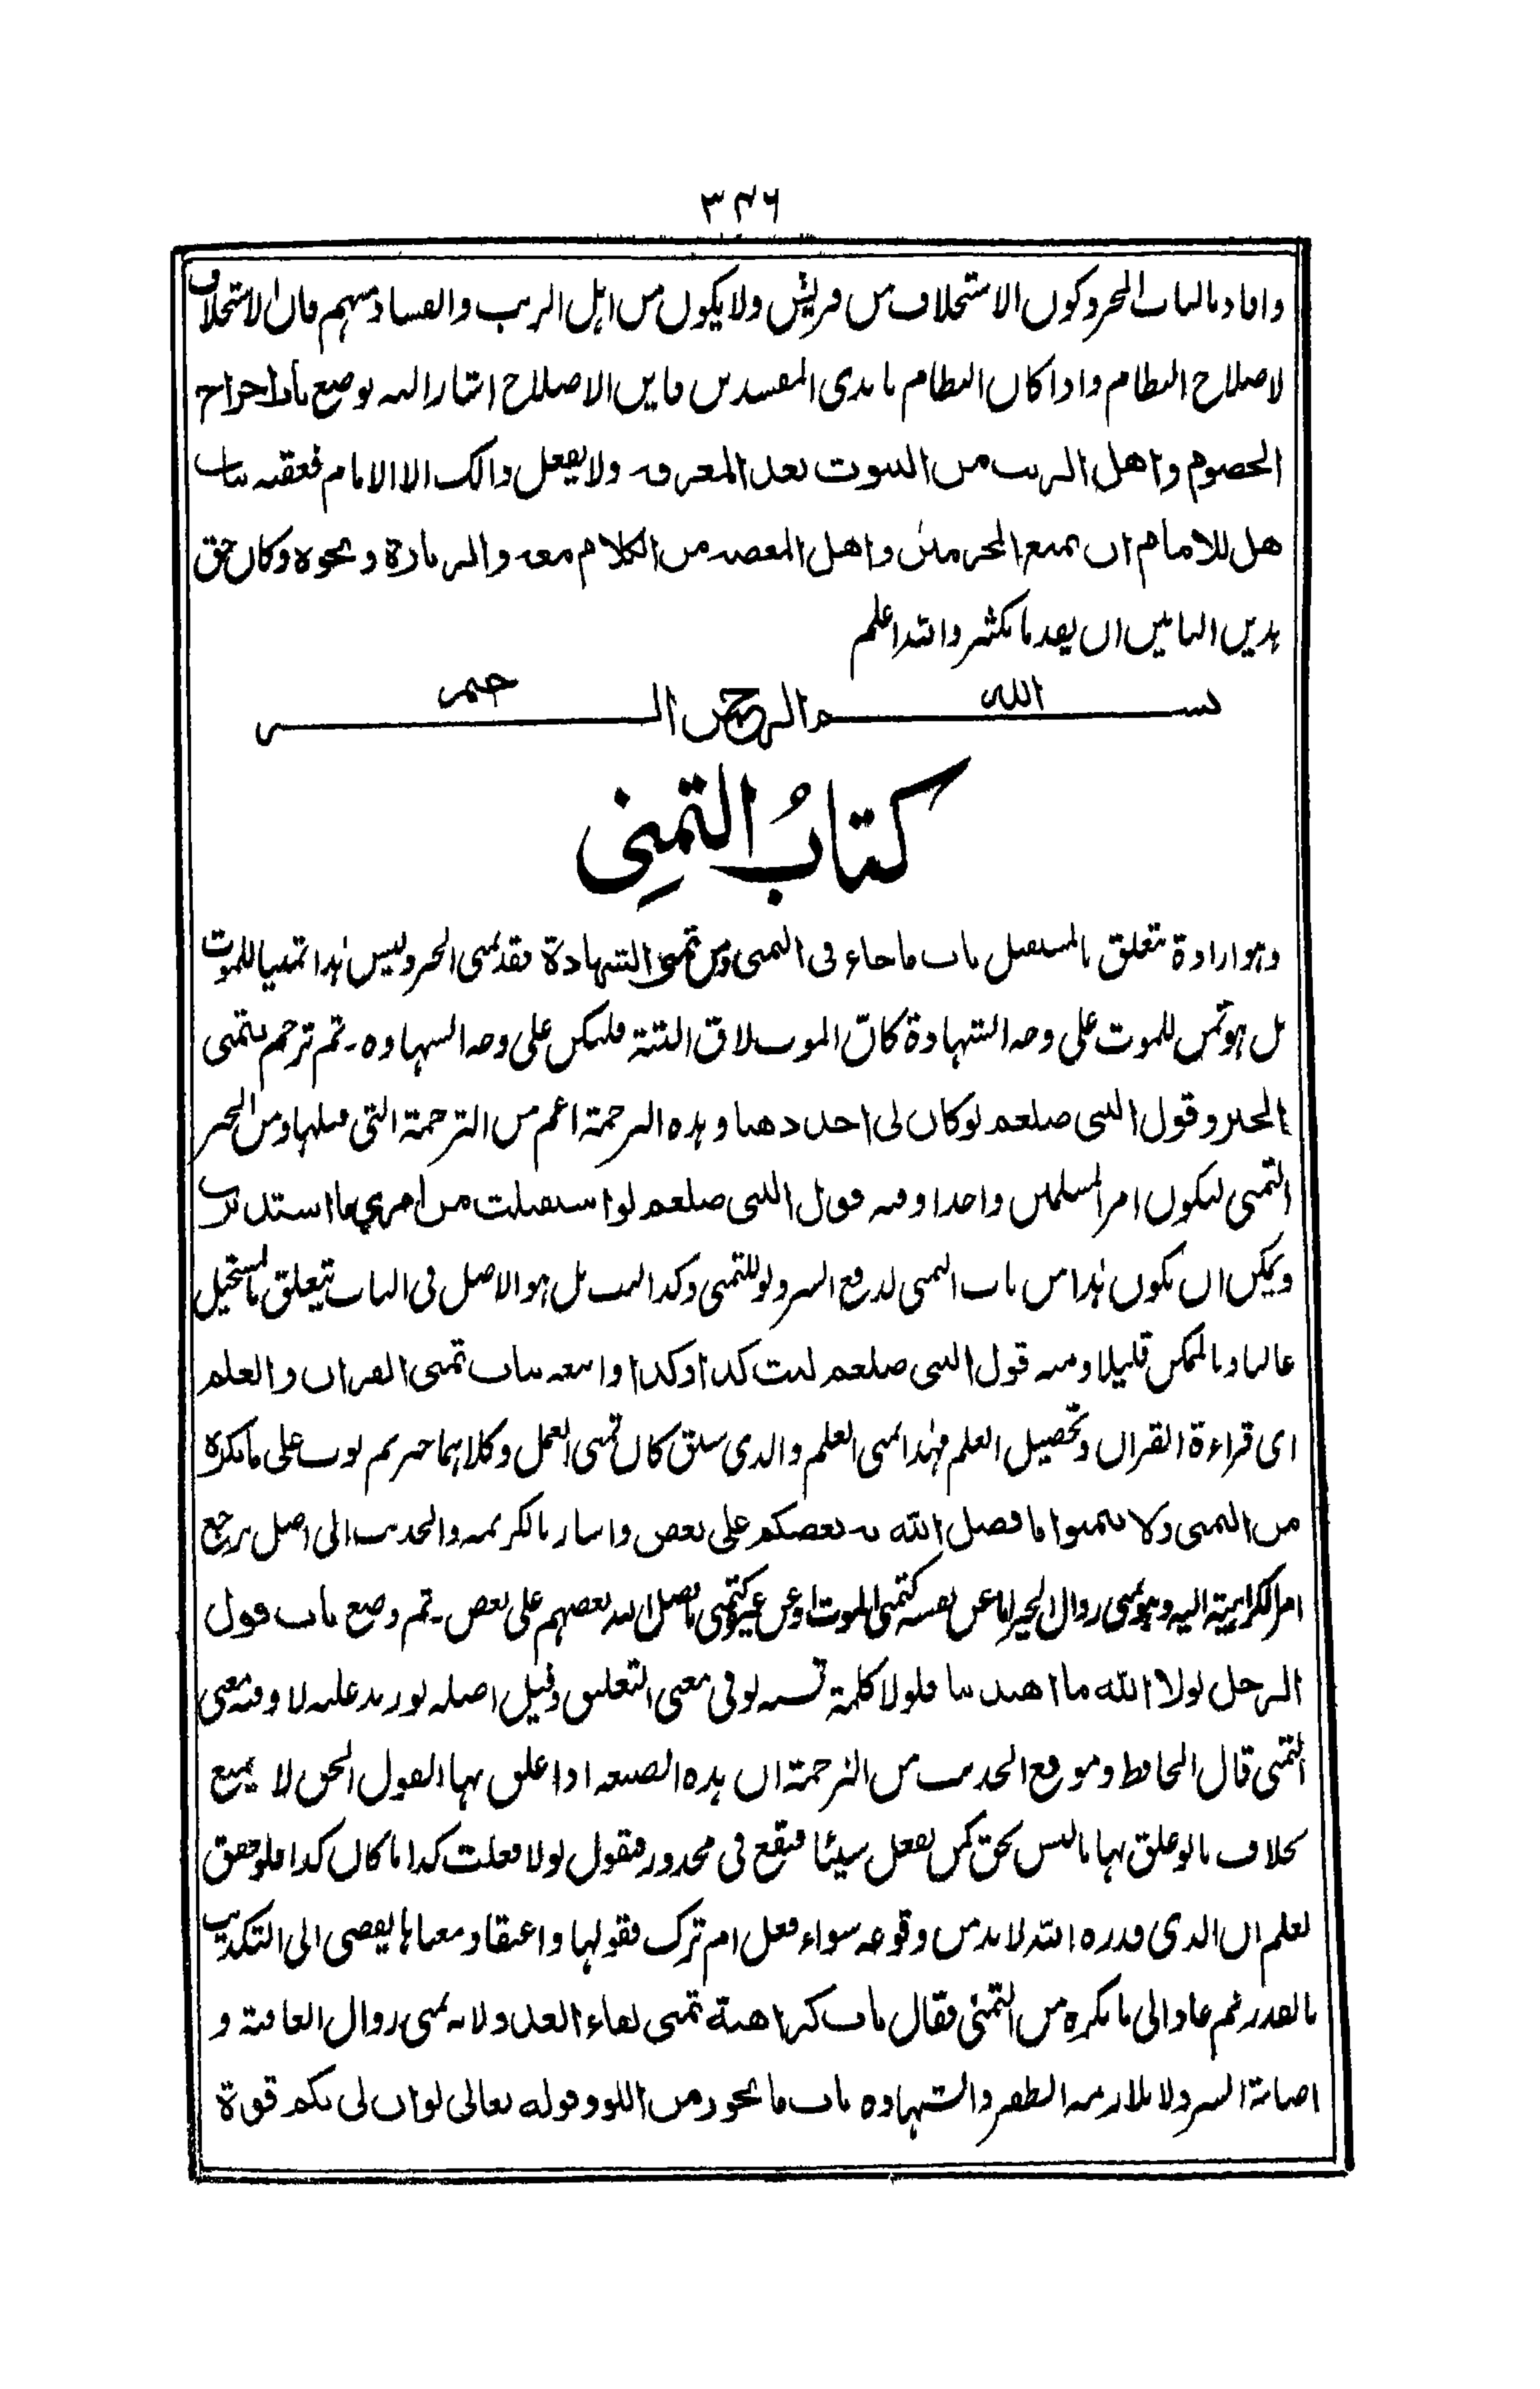 ۳۴۶
وافاد بالباب المجرد كون الاستخلاف من قريش ولا يكون من اهل الريب والفساد منهم فان الاستخلاف
لاصلاح النظام واذا كان النظام بايدى المفسدين فاين الاصلاح اشار اليه بوضع باب اخراج
الخصوم واهل الريب من البيوت بعد المعرفة ولا يفعل ذالك الا الامام فعقبه بباب
هل للامام ان يمنع المجرمين واهل المعصية من الكلام معه والزيارة ونحوه وكان حق
هذين البابين ان يعد ما بكثير والله اعلم
بسم الله الرحمن الرحيم
كتابُ التمنِى
وهو ارادة تتعلق بالمستقبل باب ماجاء فى التمنى ومن تمنى الشهادة فقد تمنى الخير وليس هذا تمنيا للموت
بل هو تمن للموت على وجه الشهادة كانّ الموت لاق البتة فليكن على وجه الشهادة ـ ثم ترجم بتمنى
الخير وقول النبى صلعم لو كان لى احد ذهبا وهذه الترجمة اعم من الترجمة التى قبلها ومن الخير
التمنى ليكون امر المسلمين واحدا وفيه قول النبى صلعم لو استقبلت من امري ما استدبرت
ويمكن ان يكون هذا من باب التمنى لدفع الشر ولو للتمنى وكذا ليت بل هو الاصل فى الباب يتعلق بالمستحيل
غالبا وبالممكن قليلا ومنه قول النبى صلعم ليت كذا وكذا واتبعه بباب تمنى القران والعلم
اى قراءة القران وتحصيل العلم فهذا تمنى العلم والذى سبق كان تمنى العمل وكلاهما خير ثم بوب على مايكره
من التمنى ولا تتمنوا ما فضل الله به بعضكم على بعض واشار بالكريمة والحديث الى اصل يرجع
امر الكراهية اليه وهو تمنى زوال الخير اما عن نفسه كتمنى الموت او عن غيره كتمنى ما فضل الله بعضهم على بعض ـ ثم وضع باب قول
الرجل لولا الله ما اهتدينا فلولا كلمة لو فى معنى التعليق وقيل اصله لو زيد عليه لا وفيه معنى
التمنى قال الحافظ وموقع الحديث من الترجمة ان هذه الصيغة اذا علق بها القول الحق لا يمنع
بخلاف ما لو علق بها ما ليس بحق كمن يفعل شيئا فيقع فى محذور فيقول لولا فعلت كذا ما كان كذا فلو حقق
لعلم ان الذى قدره الله لا بد من وقوعه سواء فعل ام ترك فقولها واعتقاد معناها يفضى الى التكذيب
بالقدر ثم عاد الى ما يكره من التمنى فقال باب كراهية تمنى لقاء العدو لانه تمنى زوال العافية و
اصابة الشر ولا يلازمه الظفر والشهادة باب ما يجوز من اللو وقوله تعالى لو ان لى بكم قوة